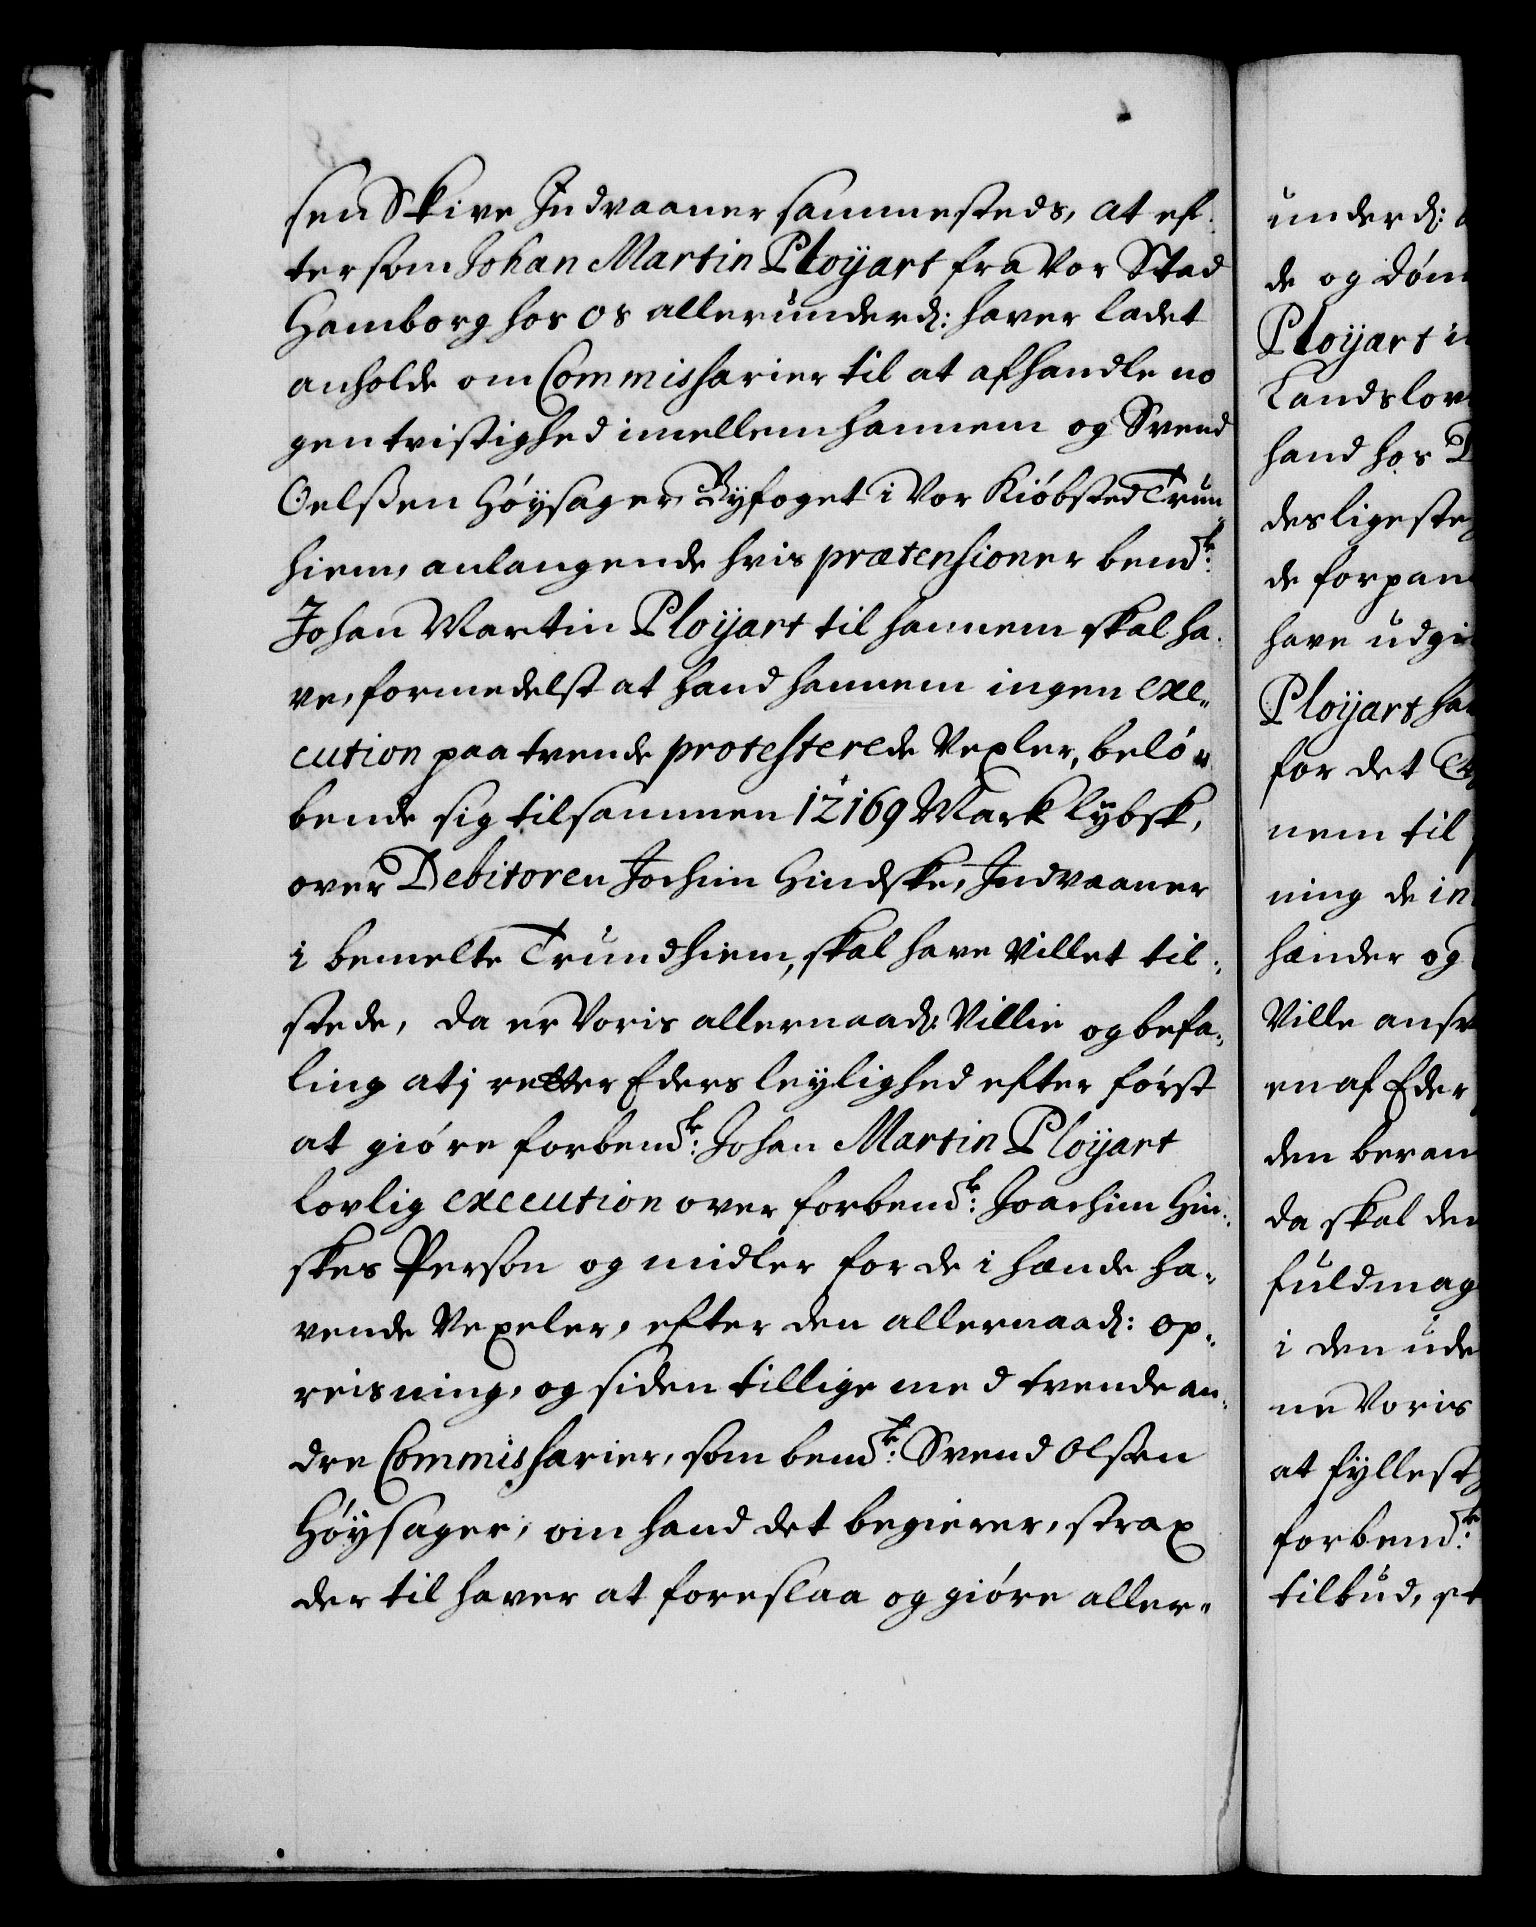 sen Skive Indvaaner sammesteds, at ef-
tersom Johan Martin Ployart fra Vor Stad
Hamborg hos os allerunderd: haver ladet
anholde om Commissarier til at afhandle no
gen tvistighed imellem hannem og Svend
Oelssen Høysager, Byfoget i Vor Kiøbsted Trun
hiem, anlangende hvis prætensioner bemte:
Johan Martin Ployart til hannem skal ha-
ve, formedelst at hand hannem ingen exe-
cution paa tvende protesterede Vexler, belø-
bende sig tilsammen 12169 Mark lybsk,
over Debitoren Jochim Hindske, Indvaaner
i bemelte Trundhiem, skal have villet til-
stede, da er Voris allernaad: Villie og befa-
ling at j retter Eders leylighed efter først
at giøre forbemte: Johan Martin Ployart
lovlig execution over forbemte: Joachim Hin-
skes Person og midler for de i hænde ha-
vende Vexeler, efter den allernaad: op-
reisning, og siden tillige med tvende an-
dre Commissarier, som bemte: Svend Olsen
Høysager, om hand det begierer, strax
der til haver at foreslaa og giøre aller-
underd:
de og døm
Ployart
Landslov
hand hos
desligeste
de forpan
have udgi
Ployart ha
for det
nem til
ning de in
hænder og
Ville ansv
en af Eder
den beram
da skal den
fuldmag
i den ude
ne Voris
at fyllest
forbemte:
tilbud, st